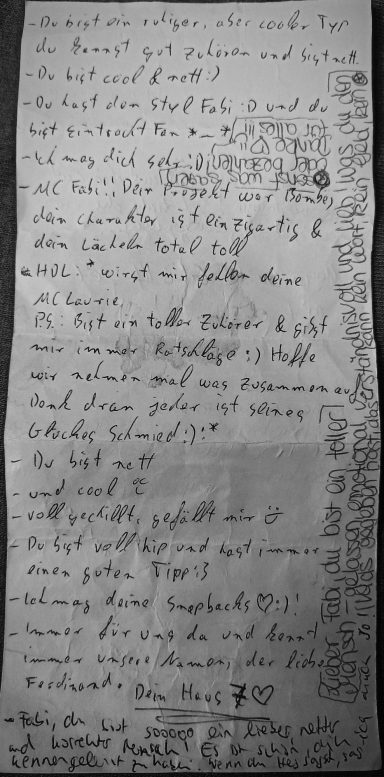 - Du bist ein ruhiger, aber cooler Typ
du kannst gut zuhören und bist nett.
- Du bist cool & nett :)
- Du hast den Styl Fabi :D und du
bist Eintracht Fan *_*
- Ich mag dich sehr :D
- MC Fabi!! Dein Projekt war Bombe,
dein charakter ist einzigartig &
dein Lächeln total toll
HDL :* wirst mir fehlen deine
MC Laurie,
P.S.: Bist ein toller Zuhörer & gibst
mir immer Ratschläge :) Hoffe
wir nehmen mal was zusammen auf
Denk dran jeder ist seines
Glückes Schmied :) :*
- Du bist nett
- und cool
- voll gechillt, gefällt mir ☺
- Du bist voll hip und hast immer
einen guten Tipp :3
- Ich mag deine Snapbacks ♡ :) !
- Immer für uns da und kennt
immer unsere Namen, der liebe
Ferdinand.
Dein Haus 7 ♡
- Fabi, du bist sooooo ein lieber, netter
und korrekter Mensch! Es ist schön, dich
kennengelernt zu haben.
Lieber Fabi, du bist ein toller
Mensch - gelassen, emotional, verständnisvoll und lieb! Was du den
kann kein Wort, kein Geld
sonst was sagen
oder bezahlen!
Danke ♡
für alles!!!